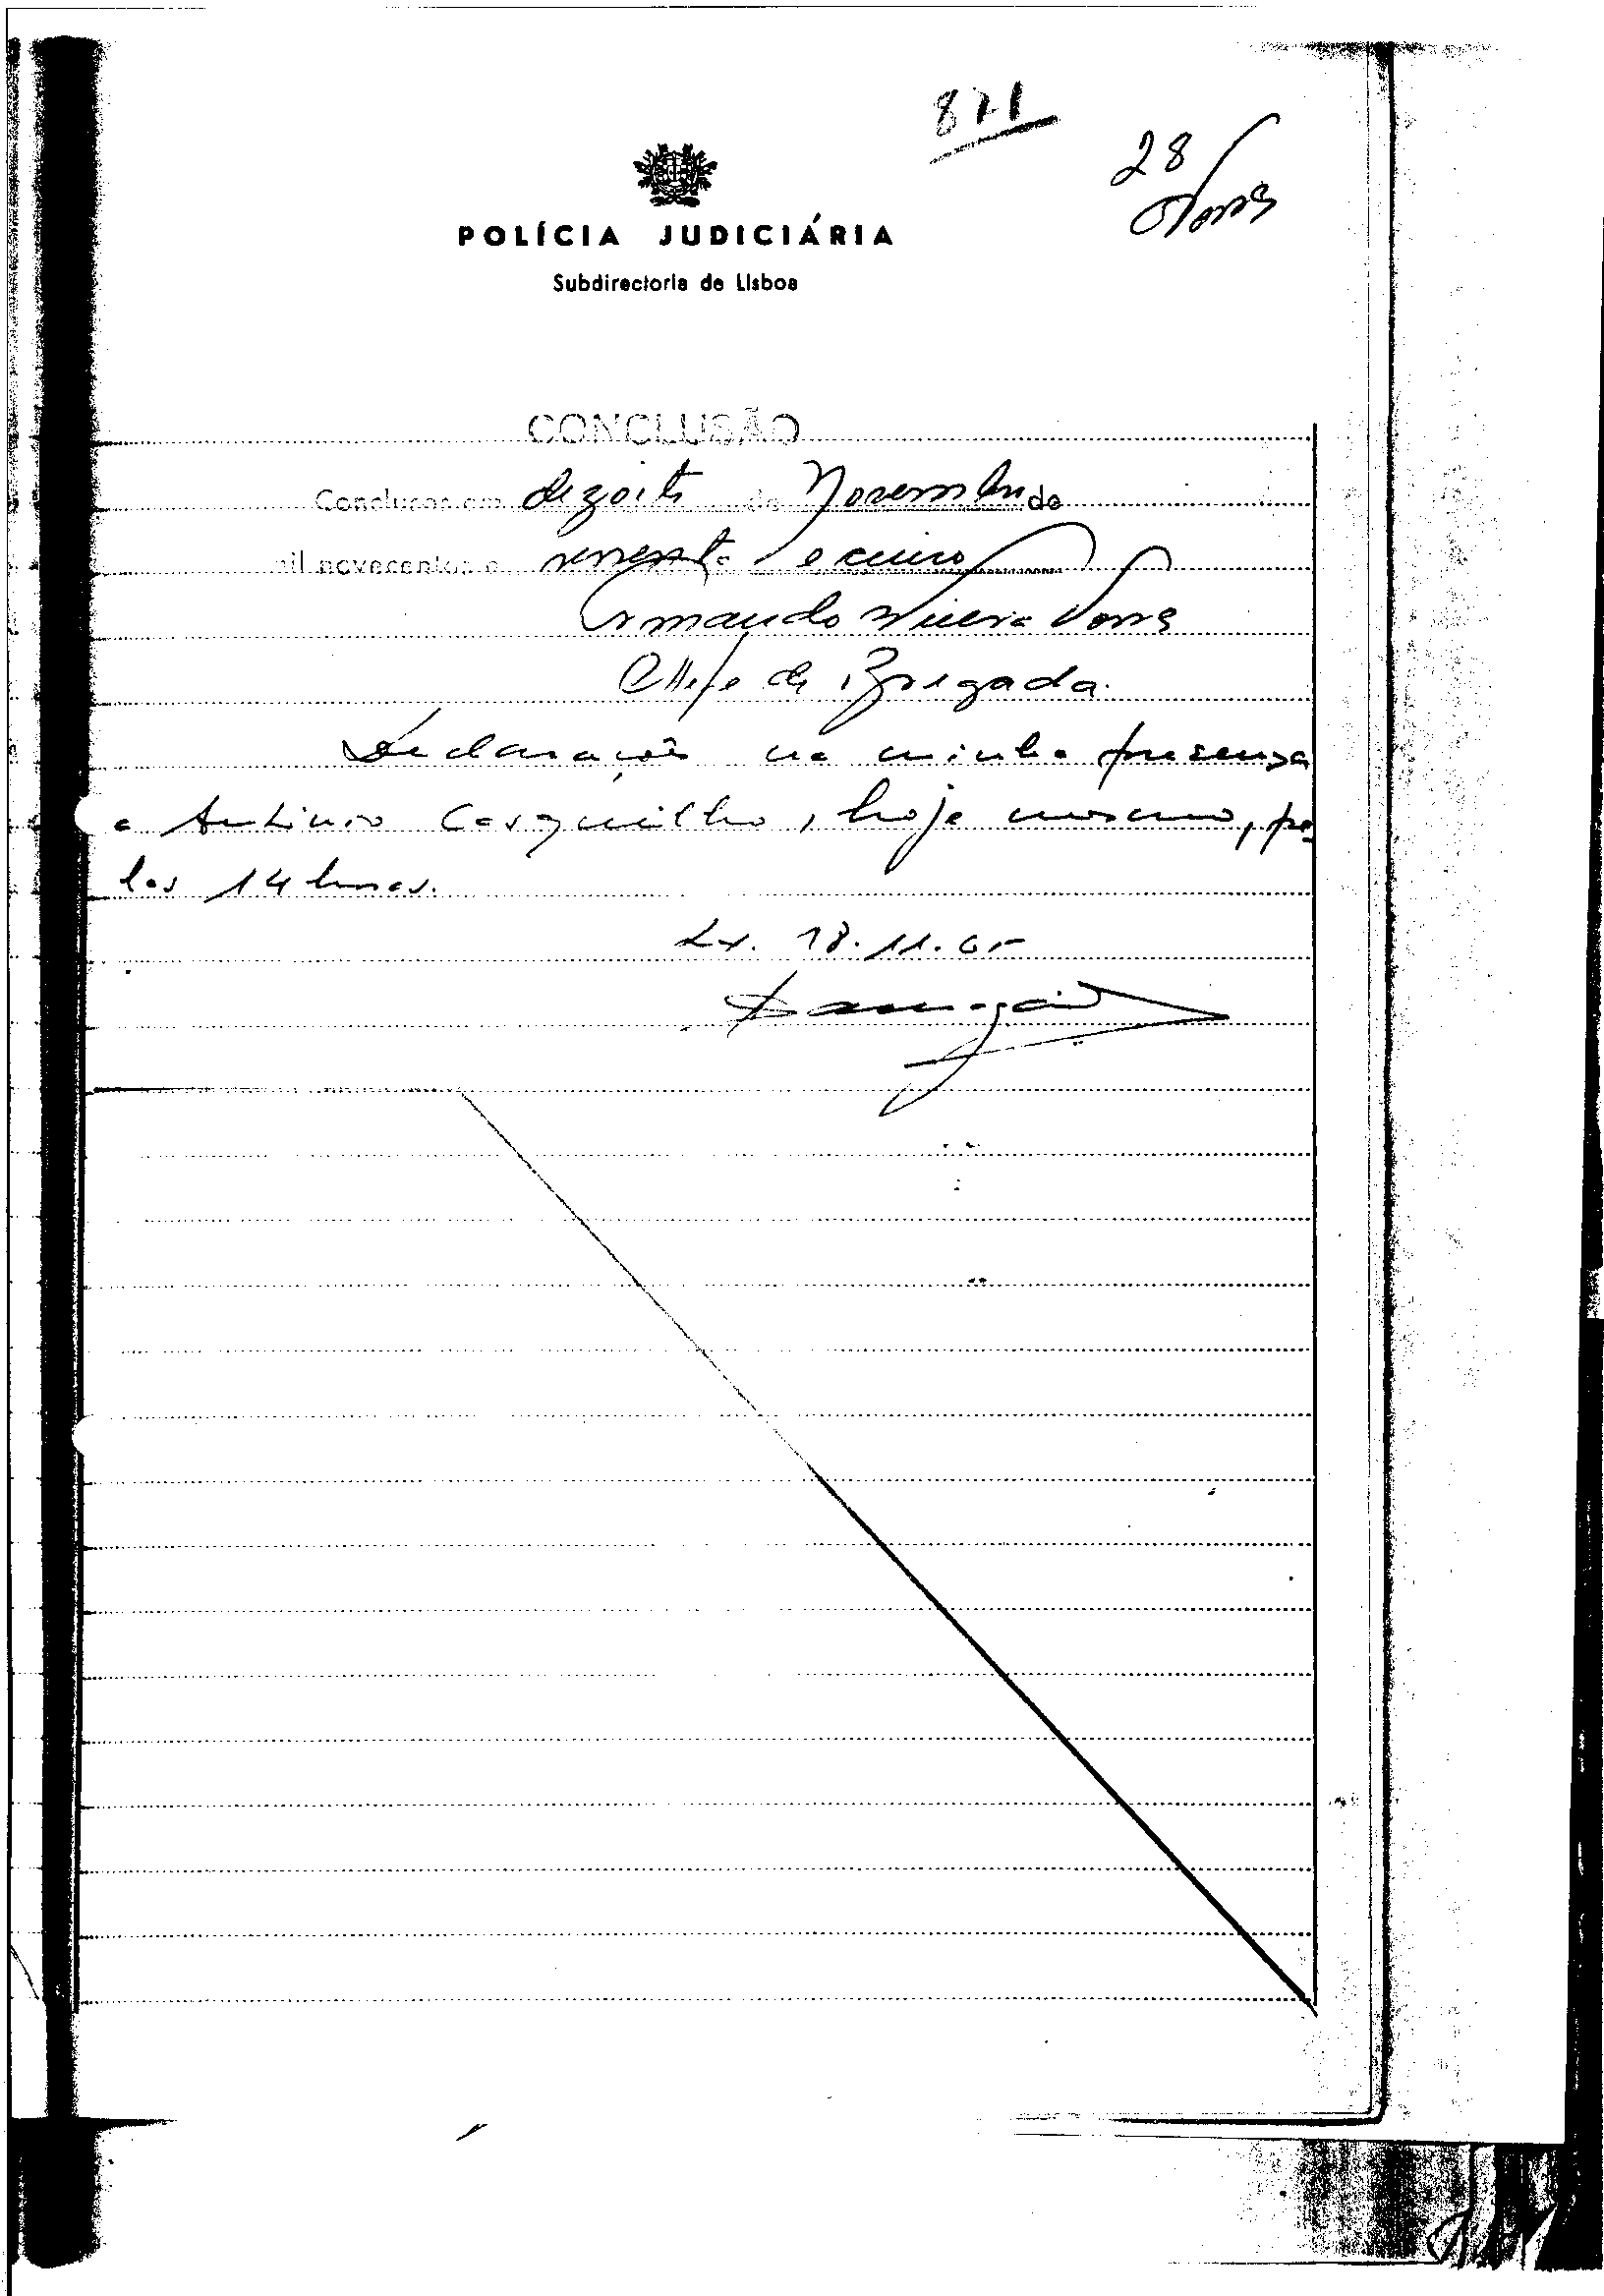 871
28
POLÍCIA JUDICIÁRIA
Subdirectoria de Lisboa
CONCLUSÃO
Conclusos em dezoito de Novembro de
mil novecentos e sessenta e cinco
Armando Vieira
Chefe de Brigada.
Declarações na minha presença
a António Casquilho, hoje mesmo, pe
las 14 horas.
Lx. 18.11.65